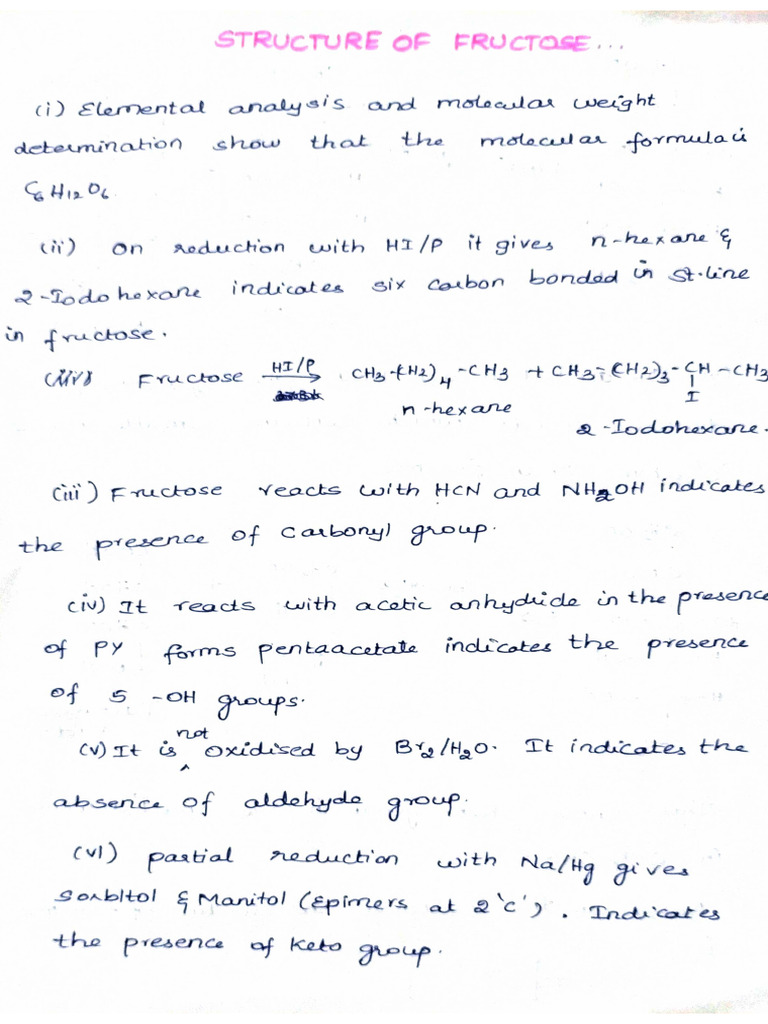 STRUCTURE OF FRUCTOSE...
(i) Elemental analysis and molecular weight
determination show that the molecular formula is
C6H12O6
(ii) On reduction with HI/P it gives n-hexane &
2-Iodohexane indicates six carbon bonded in st.line
in fructose.
Fructose HI/P → CH3-(CH2)4-CH3 + CH3-(CH2)3-CH-CH3
I
n-hexane
2-Iodohexane.
(iii) Fructose reacts with HCN and NH2OH indicates
the presence of Carbonyl group.
(iv) It reacts with acetic anhydride in the presence
of PY forms pentaacetate indicates the presence
of 5 -OH groups.
(v) It is not oxidised by Br2/H2O. It indicates the
absence of aldehyde group.
(vi) partial reduction with Na/Hg gives
Sorbitol & Manitol (Epimers at 2 'c'). Indicates
the presence of Keto group.